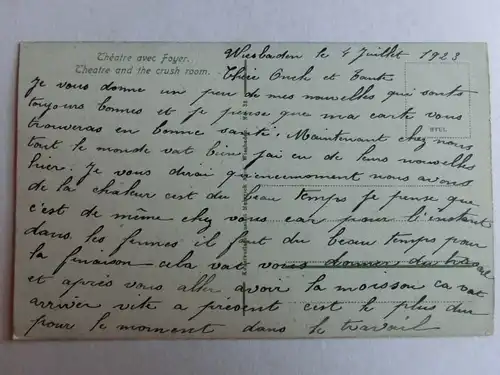 Théâtre avec Foyer.
Theatre and the crush room.
Wiesbaden le 4 Juillet 1923
Chère Oncle et Tante
Je vous donne un peu de mes nouvelles qui sont
toujours bonnes et je pense que ma carte vous
trouveras en bonne santé. Maintenant chez nous
tout le monde vat bien j'ai eu de leurs nouvelles
hier. Je vous dirai qu'en moment nous avons
de la chaleur c'est du beau temps je pense que
c'est de même chez vous car pour l'instant
dans les fermes il faut du beau temps pour
la finaison cela vat vous donner du travail
et après vous aller avoir la moisson ca vat
arriver vite a présent c'est le plus dur
pour le moment dans le travail